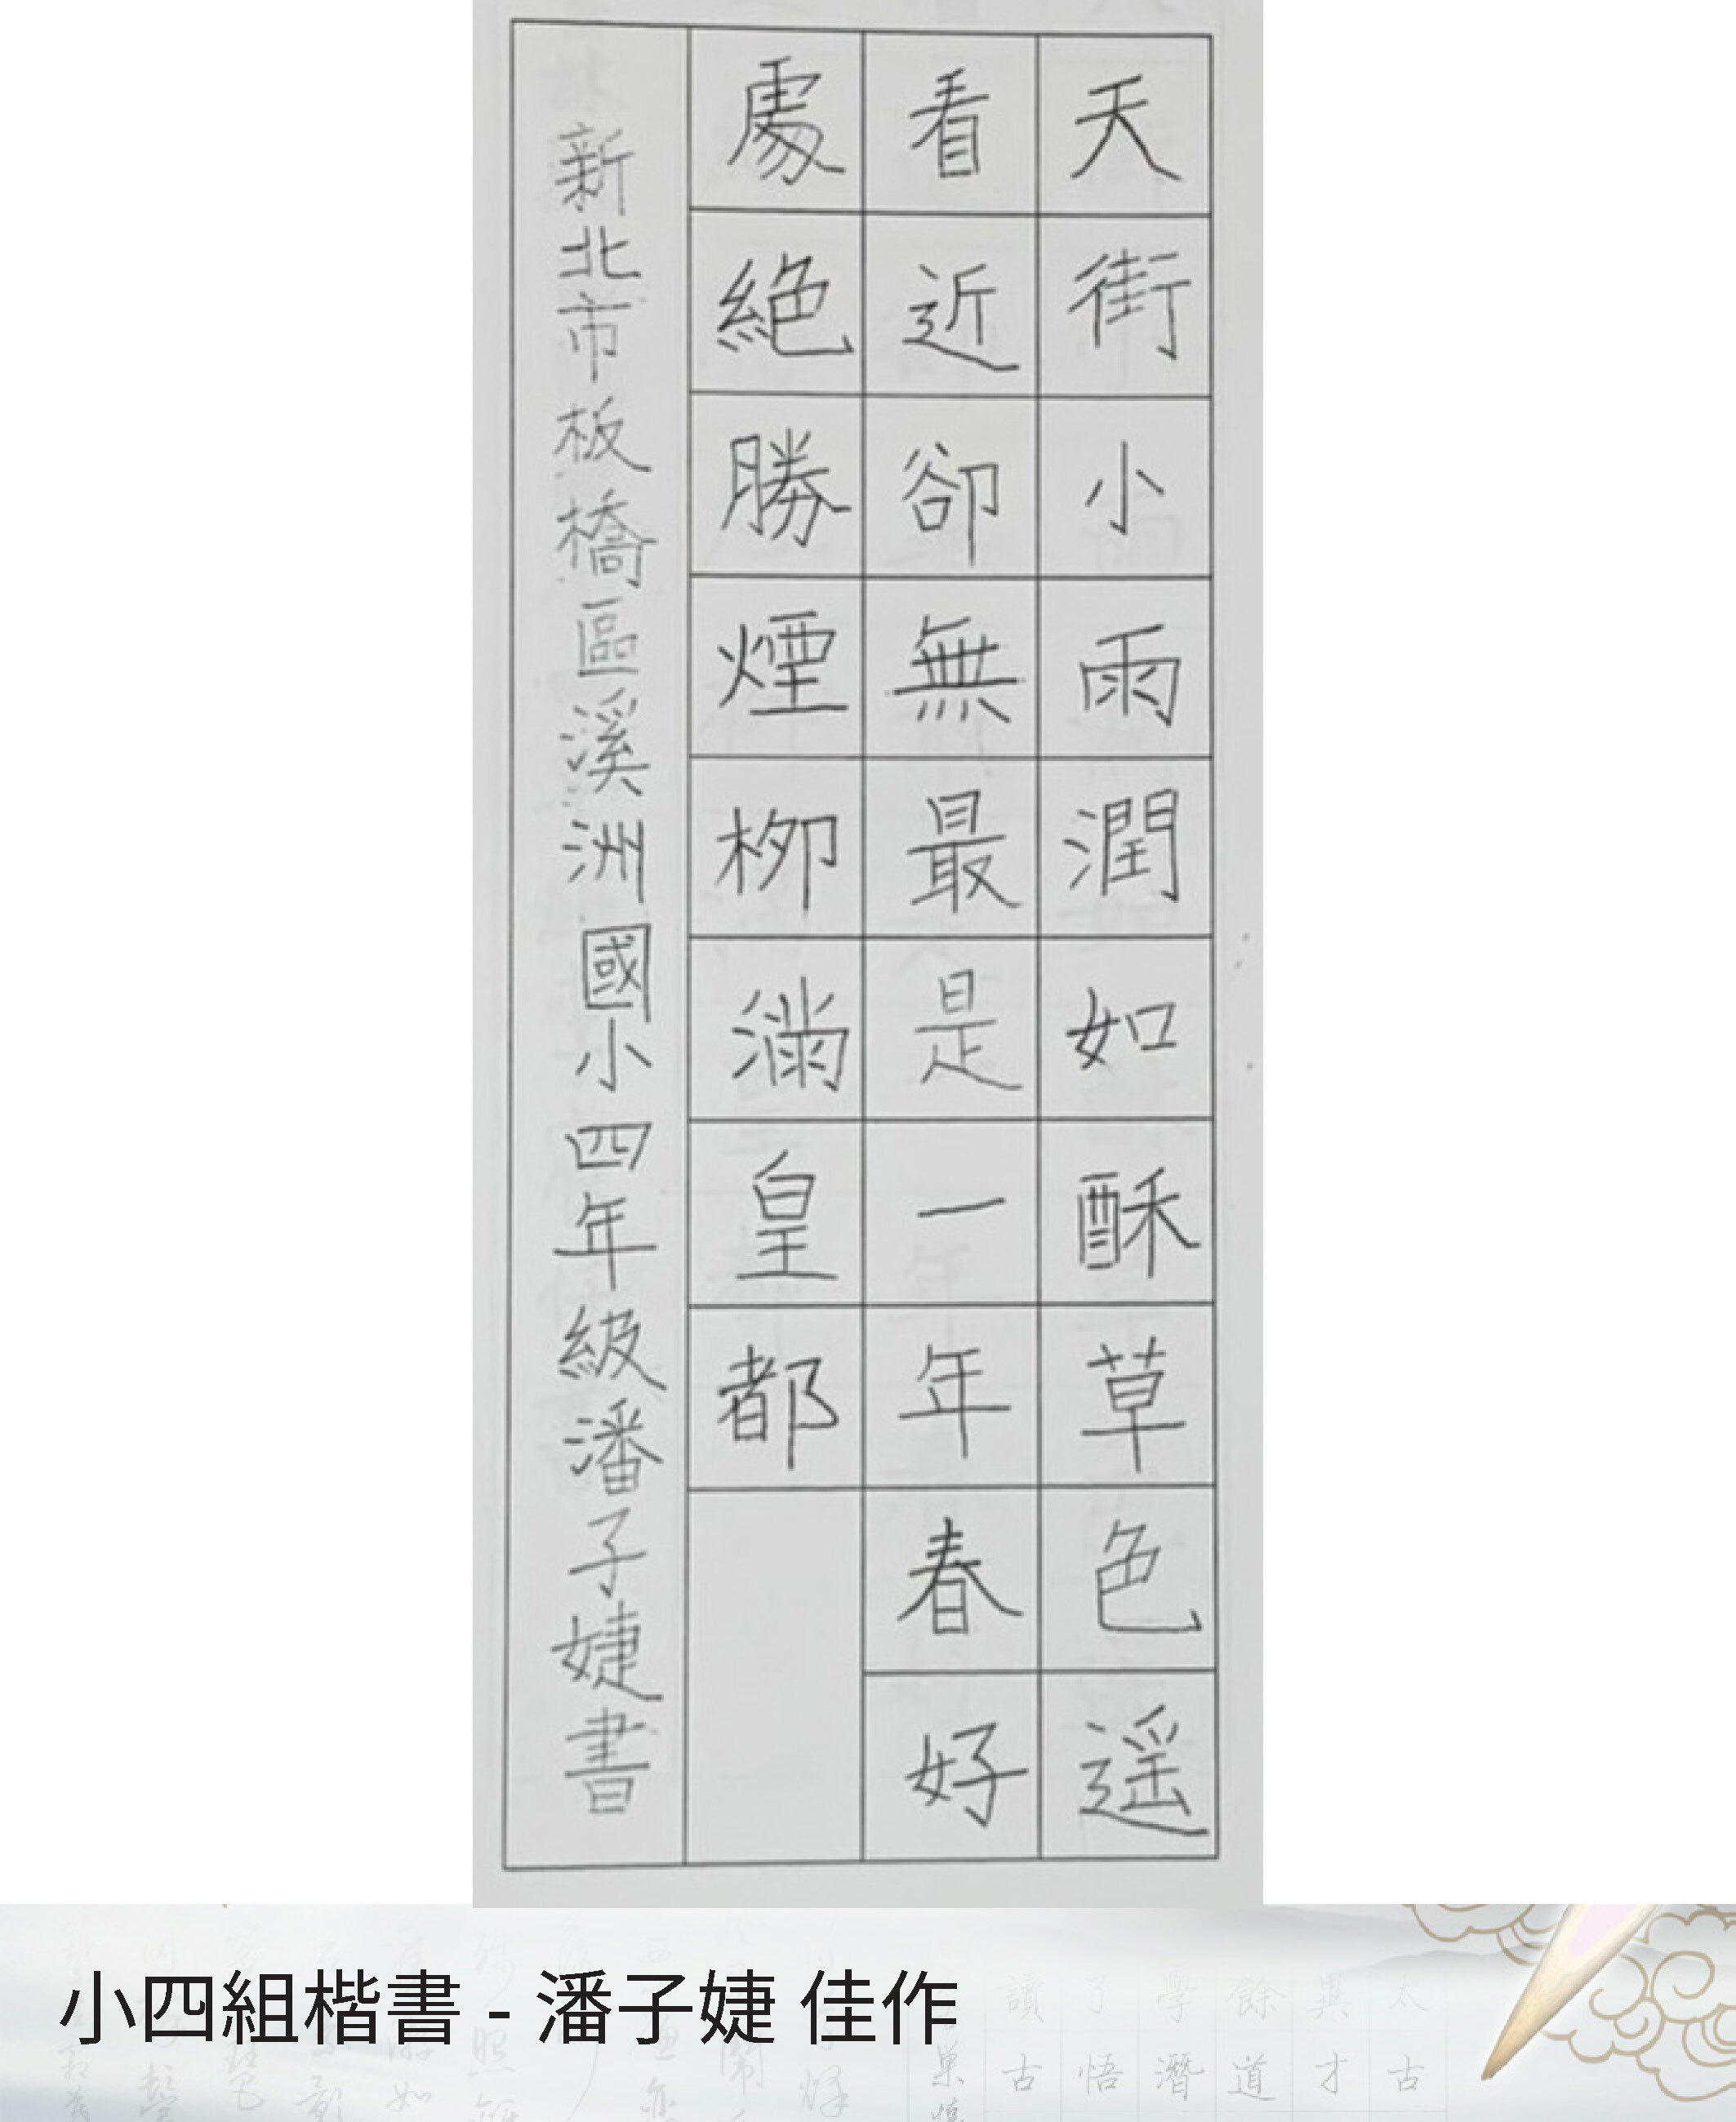 天街小雨潤如酥草色遥
看近卻無最是一年春好
處絕勝煙柳滿皇都
新北市板橋區溪洲國小四年級潘子婕書
小四組楷書 - 潘子婕 佳作